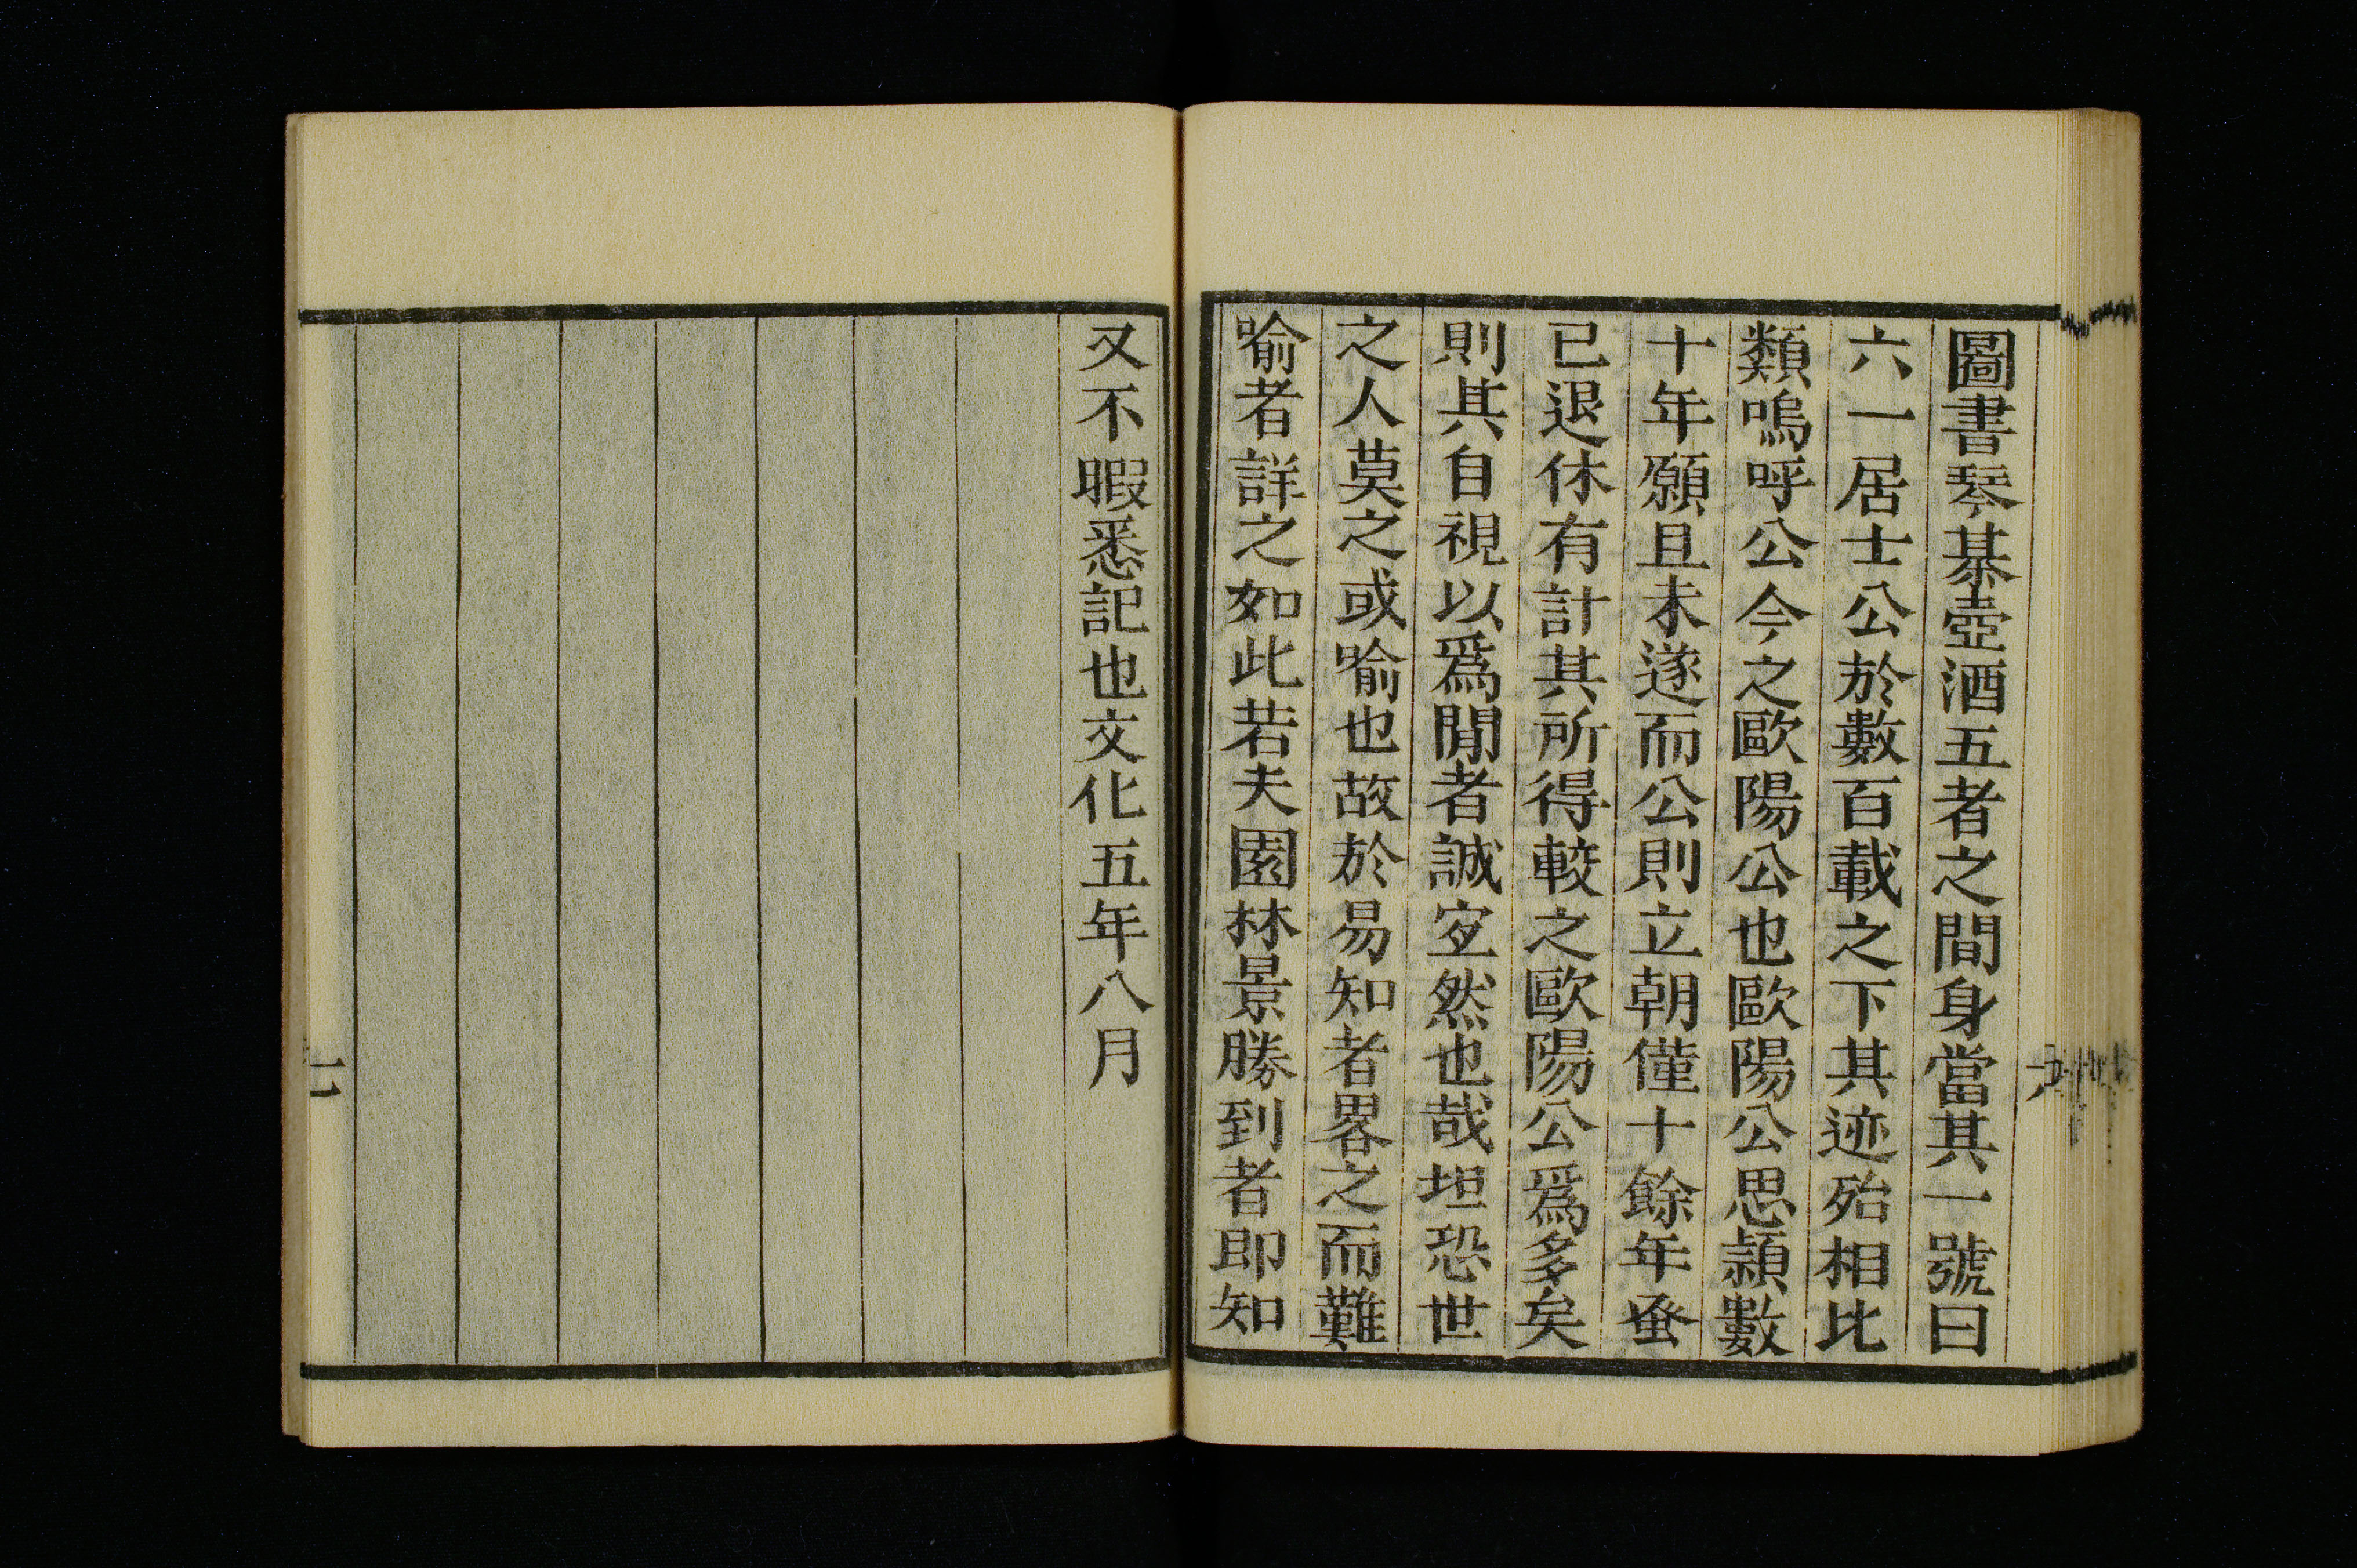 圖書琴棊壺酒五者之間身當其一號曰
六一居士公於數百載之下其迹殆相比
類嗚呼公今之歐陽公也歐陽公思潁數
十年願且未遂而公則立朝僅十餘年蚤
已退休有計其所得較之歐陽公爲多矣
則其自視以爲閒者誠宐然也哉坦恐世
之人莫之或喻也故於易知者畧之而難
喻者詳之如此若夫園林景勝到者即知
又不暇悉記也文化五年八月